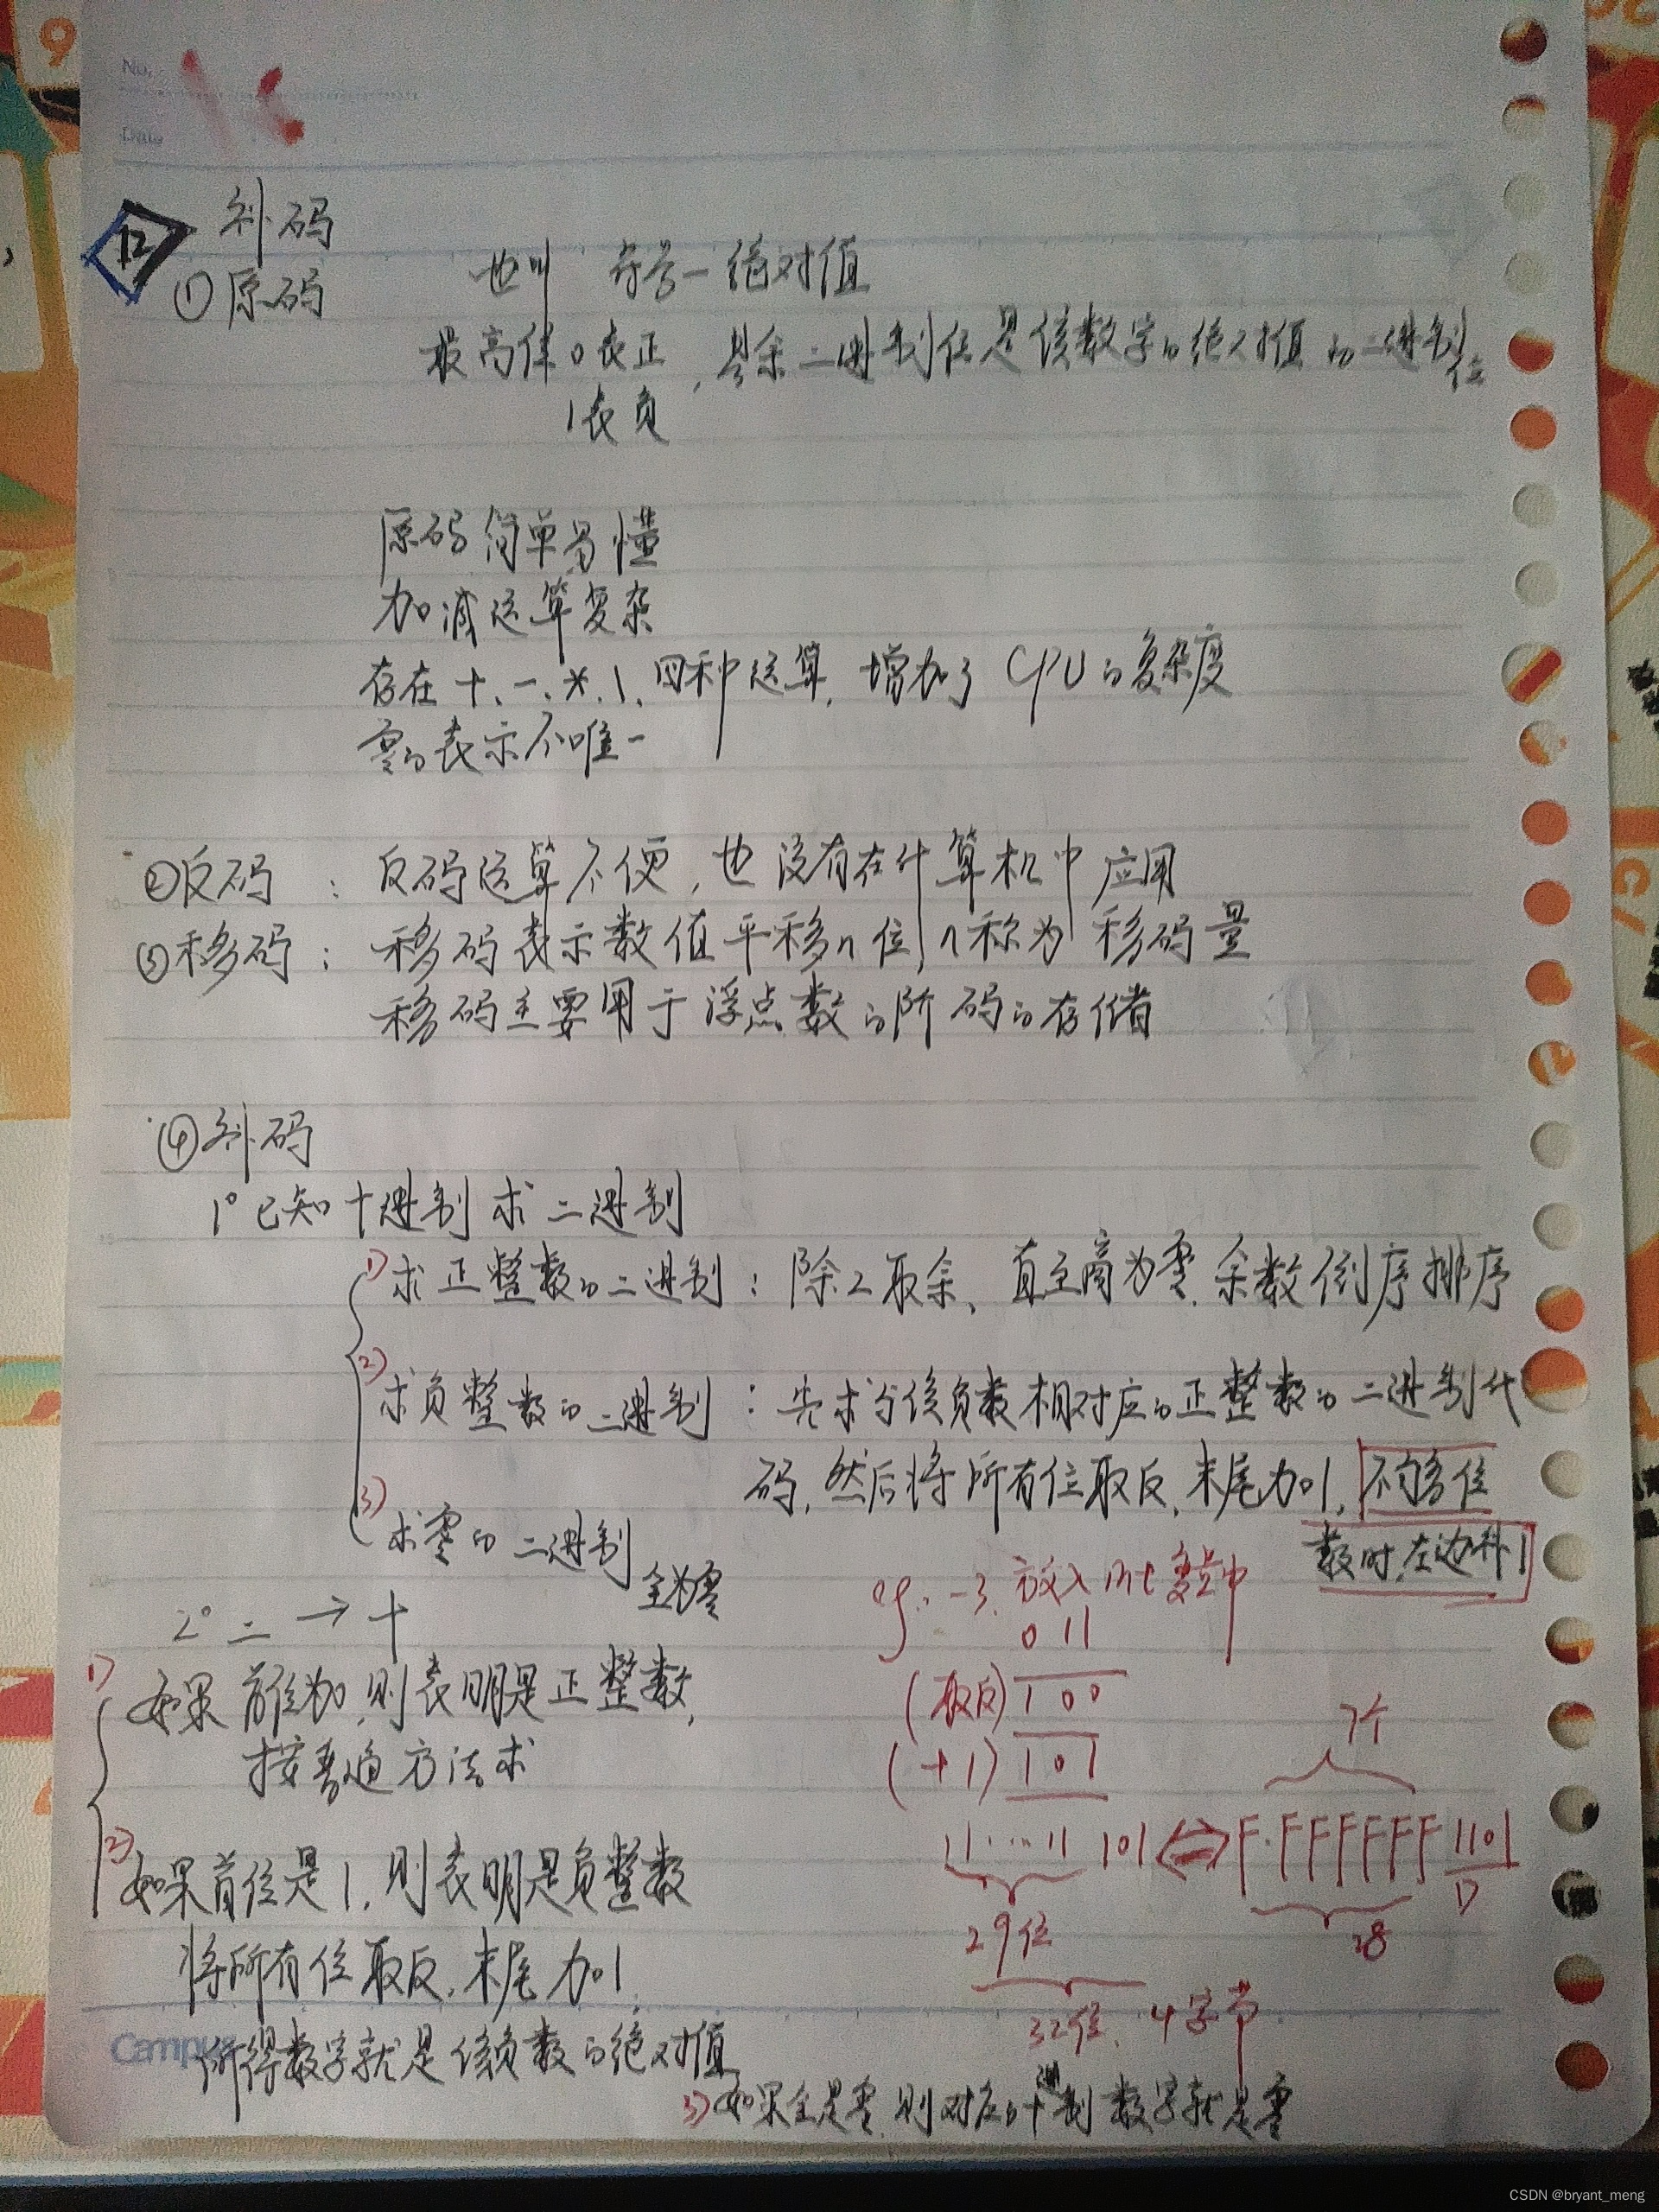 No.
Date
12 补码
①原码 也叫 符号-绝对值
最高位0表正,其余二进制位是该数字的绝对值的二进制位
1表负
原码简单易懂
加减运算复杂
存在+、-、*、\、四种运算,增加了CPU的复杂度
零的表示不唯一
②反码:反码运算不便,也没有在计算机中应用
③移码:移码表示数值平移n位,n称为移码量
移码主要用于浮点数的阶码的存储
④补码
1° 已知十进制求二进制
1)求正整数的二进制:除2取余、直至商为零.余数倒序排序
2)求负整数的二进制:先求与该负数相对应的正整数的二进制代
码,然后将所有位取反,末尾加1,不够位
数时,左边补1
3)求零的二进制
全为零
eg:-3.放入int变量中
0 11
(取反) 1 0 0
(+1) 1 0 1
11...11 101 <=> F.FFFFFF 1101
7个
D
29位
28
32位、4字节
2° 二→十
1)如果首位为0,则表明是正整数,
按普通方法求
2)如果首位是1,则表明是负整数
将所有位取反,末尾加1,
所得数字就是该负数的绝对值
3)如果全是零,则对应的十进制数字就是零
Campus
CSDN @bryant_meng